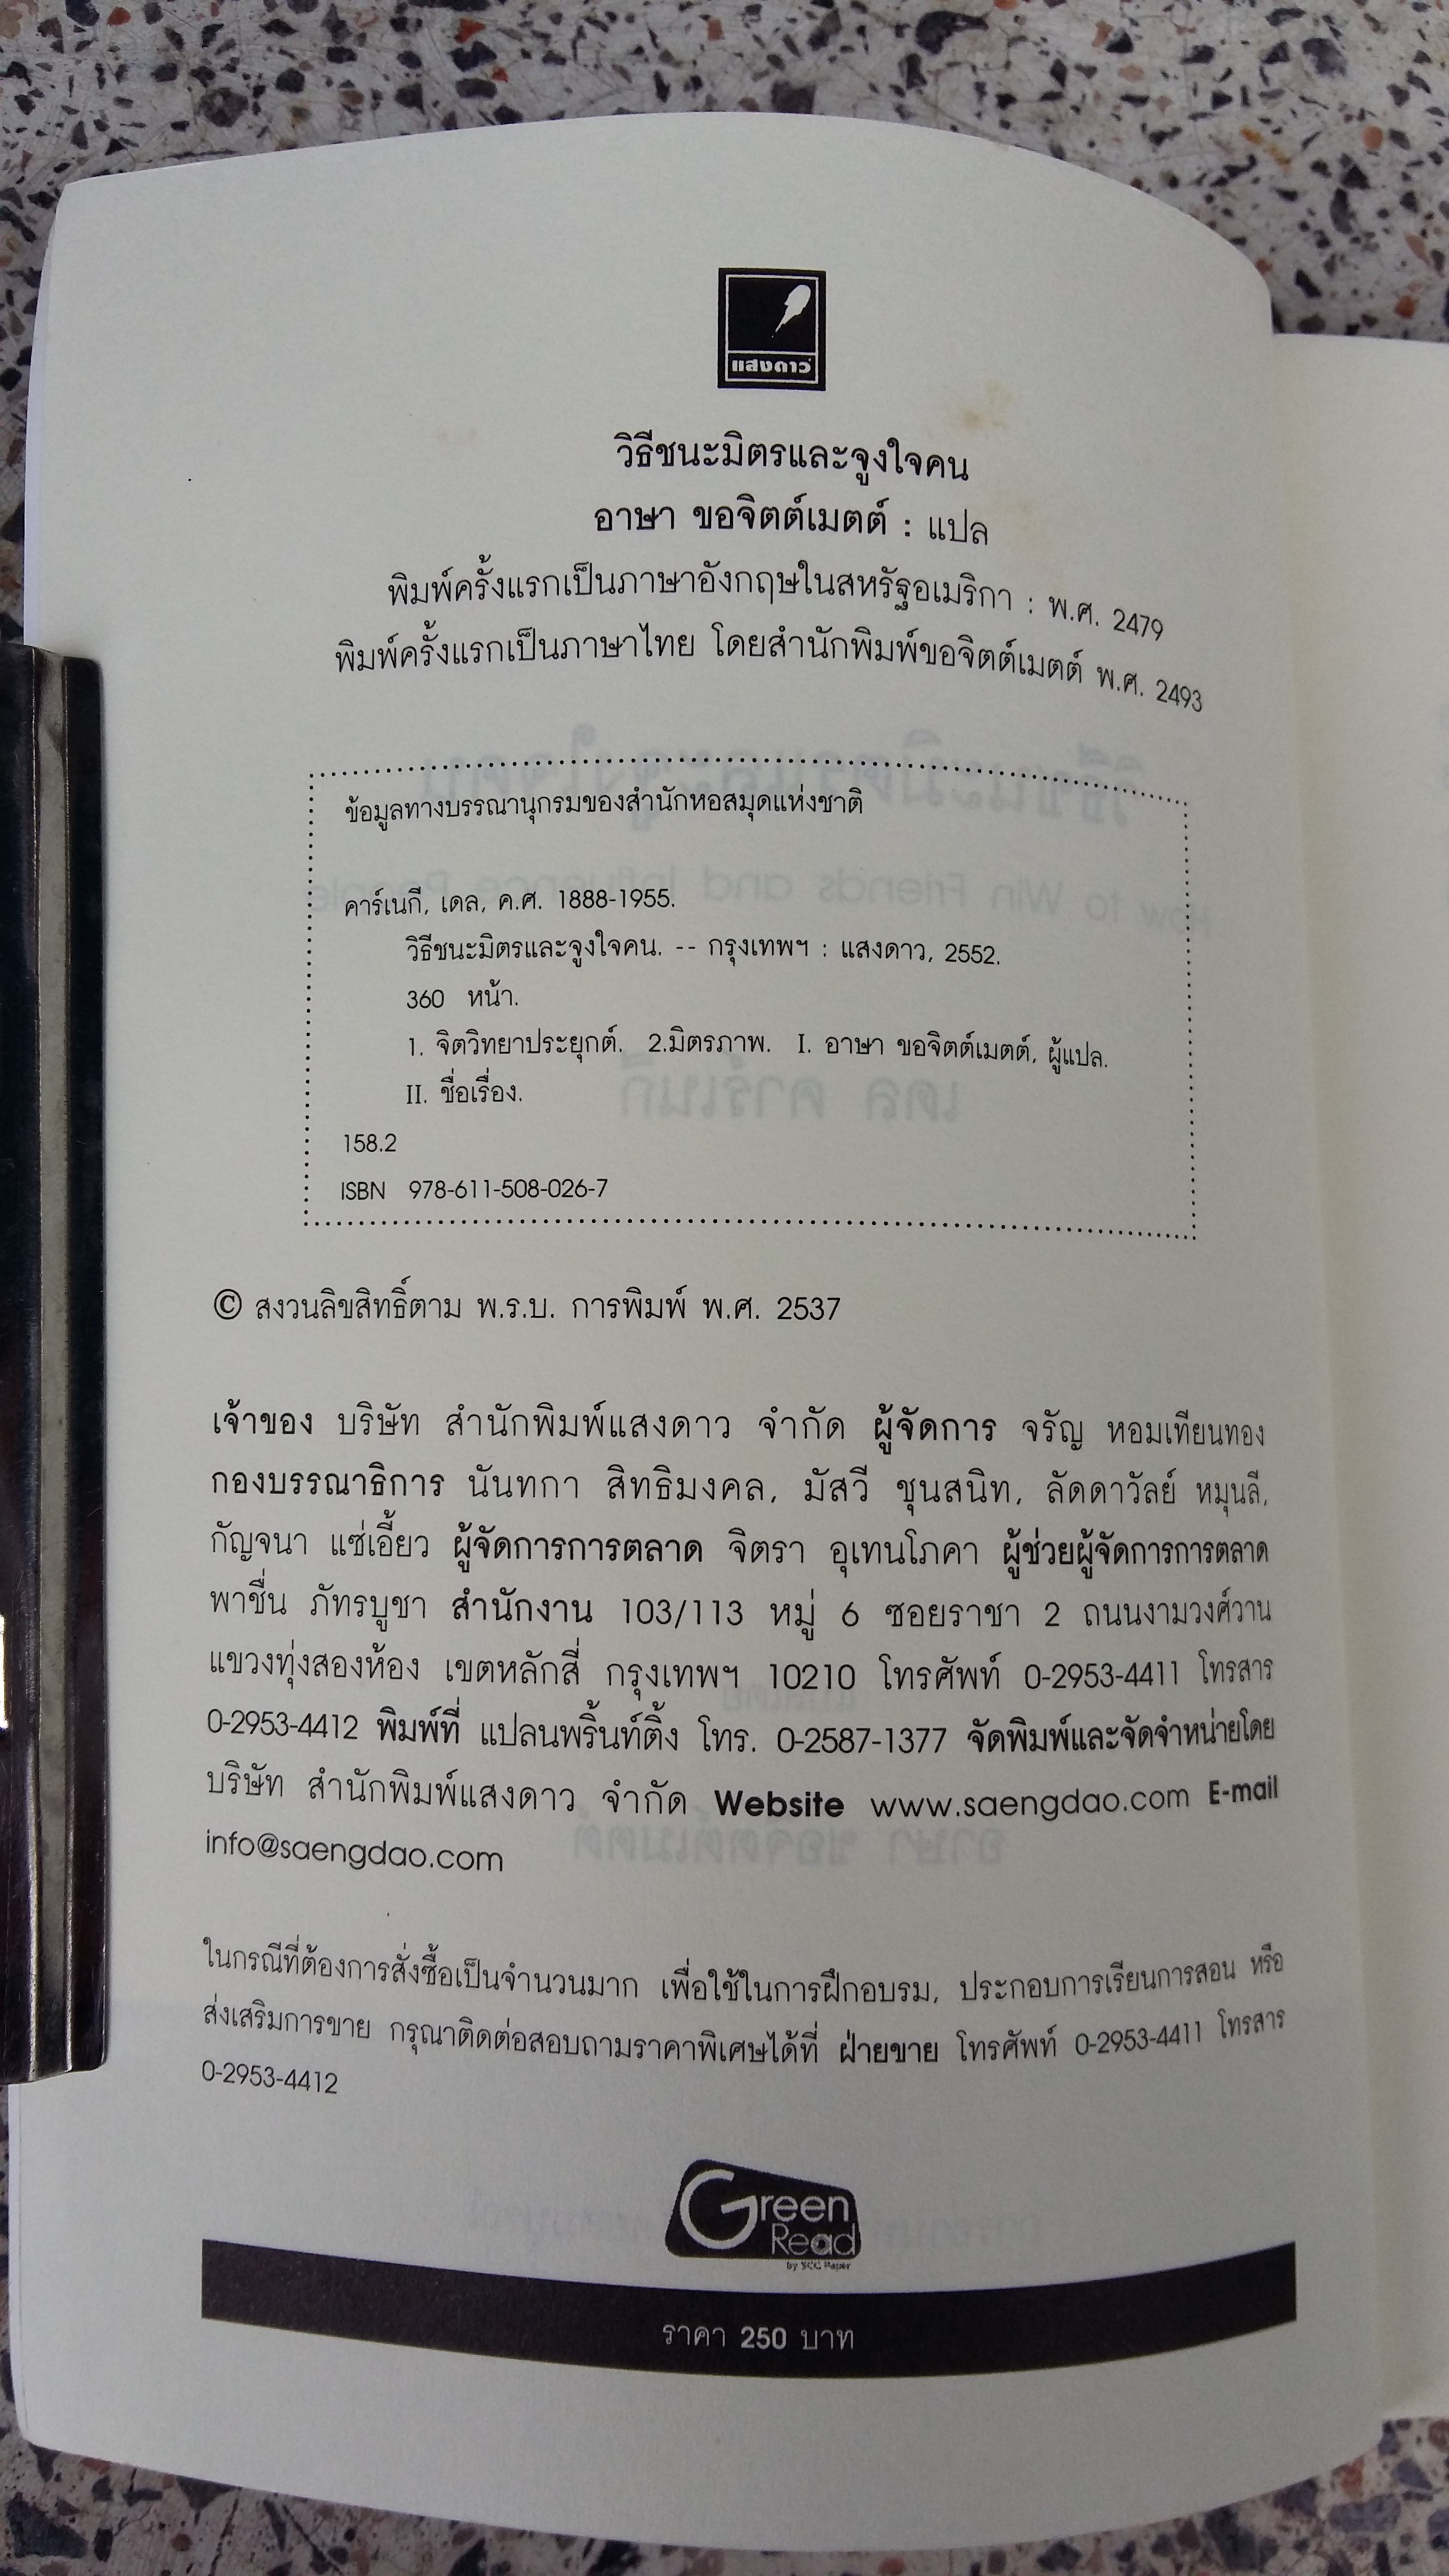 แสงดาว
วิธีชนะมิตรและจูงใจคน
อาษา ขอจิตต์เมตต์ : แปล
พิมพ์ครั้งแรกเป็นภาษาอังกฤษในสหรัฐอเมริกา : พ.ศ. 2479
พิมพ์ครั้งแรกเป็นภาษาไทย โดยสำนักพิมพ์ขอจิตต์เมตต์ พ.ศ. 2493
ข้อมูลทางบรรณานุกรมของสำนักหอสมุดแห่งชาติ
คาร์เนกี, เดล, ค.ศ. 1888-1955.
วิธีชนะมิตรและจูงใจคน. -- กรุงเทพฯ : แสงดาว, 2552.
360 หน้า.
1. จิตวิทยาประยุกต์. 2.มิตรภาพ. I. อาษา ขอจิตต์เมตต์, ผู้แปล.
II. ชื่อเรื่อง.
158.2
ISBN 978-611-508-026-7
© สงวนลิขสิทธิ์ตาม พ.ร.บ. การพิมพ์ พ.ศ. 2537
เจ้าของ บริษัท สำนักพิมพ์แสงดาว จำกัด ผู้จัดการ จรัญ หอมเทียนทอง
กองบรรณาธิการ นันทกา สิทธิมงคล, มัสวี ชุนสนิท, ลัดดาวัลย์ หมุนลี,
กัญจนา แซ่เอี้ยว ผู้จัดการการตลาด จิตรา อุเทนโภคา ผู้ช่วยผู้จัดการการตลาด
พาชื่น ภัทรบูชา สำนักงาน 103/113 หมู่ 6 ซอยราชา 2 ถนนงามวงศ์วาน
แขวงทุ่งสองห้อง เขตหลักสี่ กรุงเทพฯ 10210 โทรศัพท์ 0-2953-4411 โทรสาร
0-2953-4412 พิมพ์ที่ แปลนพริ้นท์ติ้ง โทร. 0-2587-1377 จัดพิมพ์และจัดจำหน่ายโดย
บริษัท สำนักพิมพ์แสงดาว จำกัด Website www.saengdao.com E-mail
info@saengdao.com
ในกรณีที่ต้องการสั่งซื้อเป็นจำนวนมาก เพื่อใช้ในการฝึกอบรม, ประกอบการเรียนการสอน หรือ
ส่งเสริมการขาย กรุณาติดต่อสอบถามราคาพิเศษได้ที่ ฝ่ายขาย โทรศัพท์ 0-2953-4411 โทรสาร
0-2953-4412
Green
Read
by SCG Paper
ราคา 250 บาท